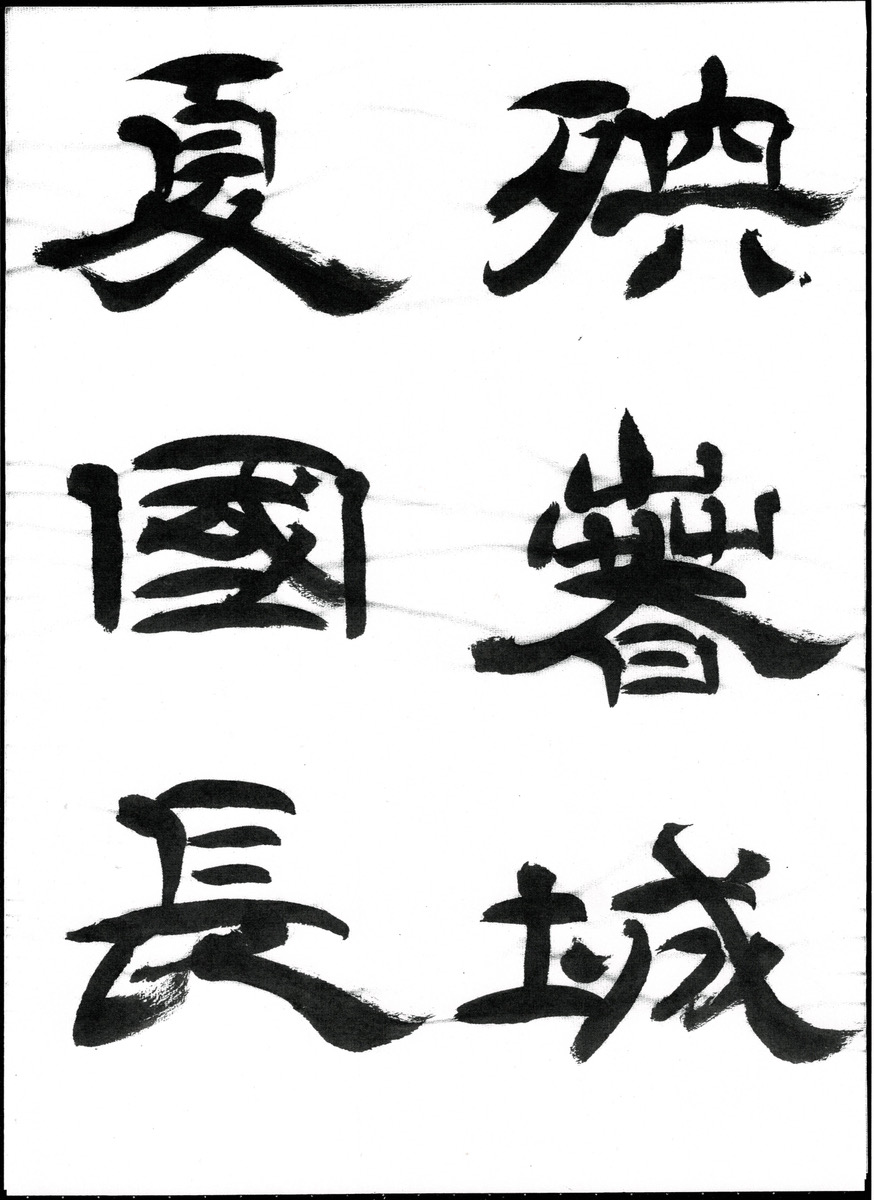 殃城
夏國長